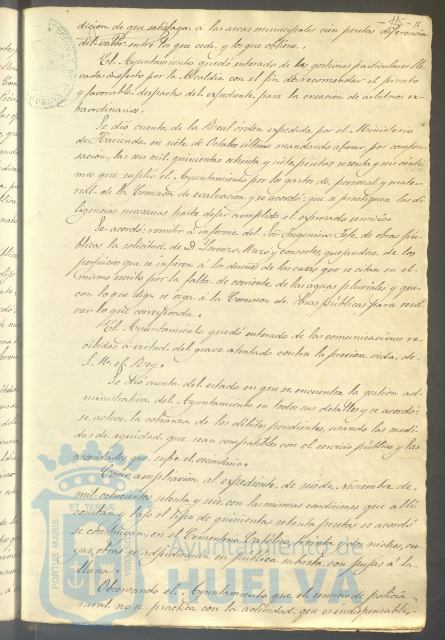 dicion de que satisfaga a las arcas municipales cien pesetas diferencia
del valor entre los que cede, y lo que obtiene.
El Ayuntamiento quedó enterado de las gestiones particulares lle-
vadas a efecto por la Alcaldia con el fin de recomendar el pronto
y favorable despacho del expediente para la creacion de arbitrios ex-
traordinarios.
Se dió cuenta de la Real órden expedida por el Ministerio
de Hacienda, en siete de Octubre último mandando abonar, por compen-
sacion, las seis mil quinientas setenta y siete pesetas sesenta y seis cénti-
mos que suplió el Ayuntamiento por los gastos de personal y mate-
rial de la Comision de evaluacion, y se acordó: que se practiquen las di-
ligencias necesarias hasta dejar cumplido el expresado servicio.
Se acordó: remitir á informe del Sor Ingeniero Jefe de obras pú-
blicas la solicitud de D. Lorenzo Muzo y consortes, que pende, de los
perjuicios que se infieren á los dueños de las casas que se citan en el
mismo escrito por la falta de corriente de las aguas pluviales, y que
con lo que diga se oiga á la Comision de Obras Públicas para resol-
ver lo que corresponda.
El Ayuntamiento quedó enterado de las comunicaciones re-
cibidas á virtud del grave atentado contra la preciosa vida de
S. M. el Rey.
Se dió cuenta del estado en que se encuentra la gestion ad-
ministrativa del Ayuntamiento en todos sus detalles y se acordó:
se active la cobranza de los débitos pendientes, usando las medi-
das de equidad que sean compatibles con el servicio público y las
necesidades que sufre el vecindario.
Como ampliacion al expediente de seis de Noviembre de
mil ochocientos setenta y seis, con las mismas condiciones que allí
constan y bajo el tipo de quinientas setenta pesetas se acordó
se construyan, en el Cementerio Católico, treinta y dos nichos, cu-
yas obras se adjudicarán en pública subasta, con pujas á la
llana.
Observando el Ayuntamiento que el servicio de policia
rural no se practica con la actividad que es indispensable,
EL TERRAE
PORTUS MARIS
Ayuntamiento de
HUELVA